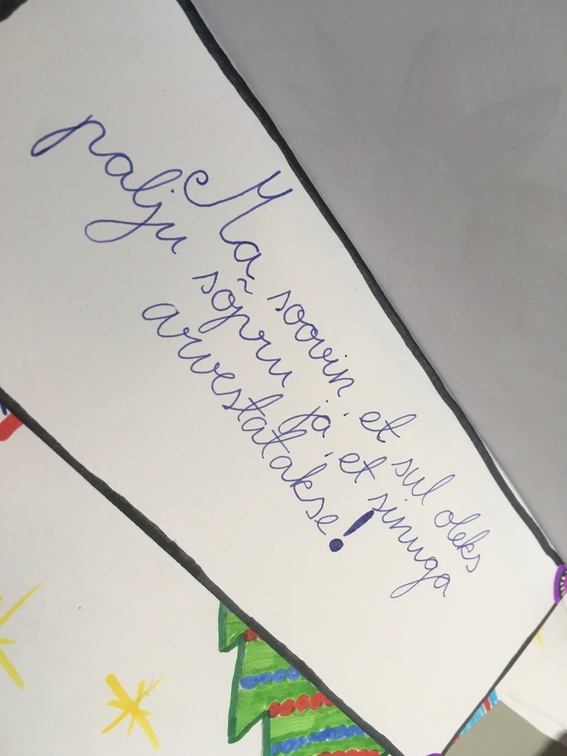 Ma soovin, et sul oleks
palju sõpru ja, et sinuga
arvestatakse!